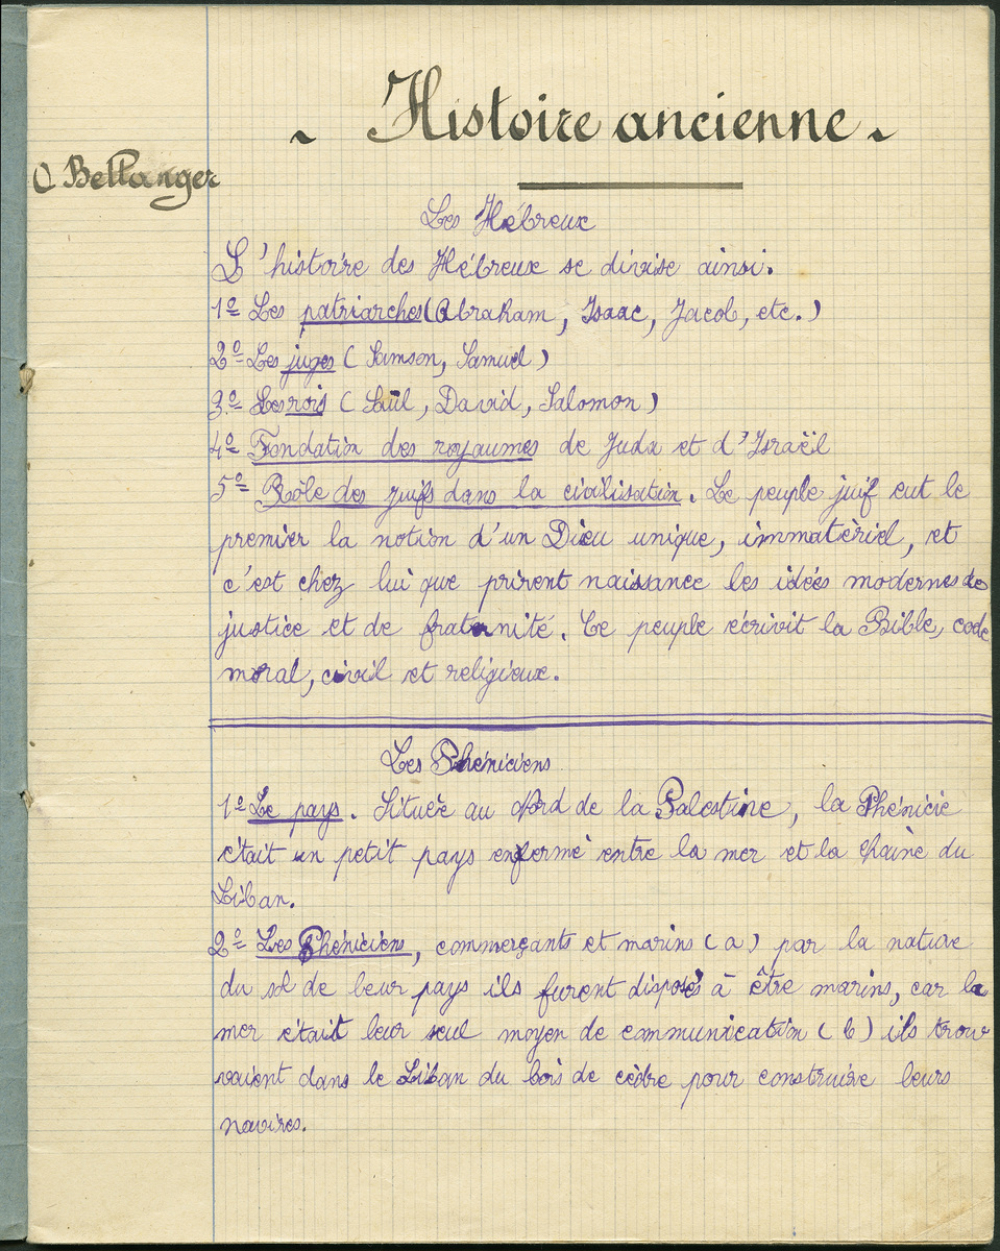 ~ Histoire ancienne ~
O Bellanger
Les Hébreux
L'histoire des Hébreux se divise ainsi.
1º Les patriarches (Abraham, Isaac, Jacob, etc.)
2º Les juges (Samson, Samuel)
3º Les rois (Saül, David, Salomon)
4º Fondation des royaumes de Juda et d'Israël
5º Rôle des juifs dans la civilisation. Le peuple juif eut le
premier la notion d'un Dieu unique, immatériel, et
c'est chez lui que prirent naissance les idées modernes de
justice et de fraternité. Ce peuple écrivit la Bible, code
moral, civil et religieux.
Les Phéniciens
1º Le pays. Située au Nord de la Palestine, la Phénicie
était un petit pays enfermé entre la mer et la chaîne du
Liban.
2º Les Phéniciens, commerçants et marins (a) par la nature
du sol de leur pays ils furent disposés à être marins, car la
mer était leur seul moyen de communication (b) ils trou
vaient dans le Liban du bois de cèdre pour construire leurs
navires.